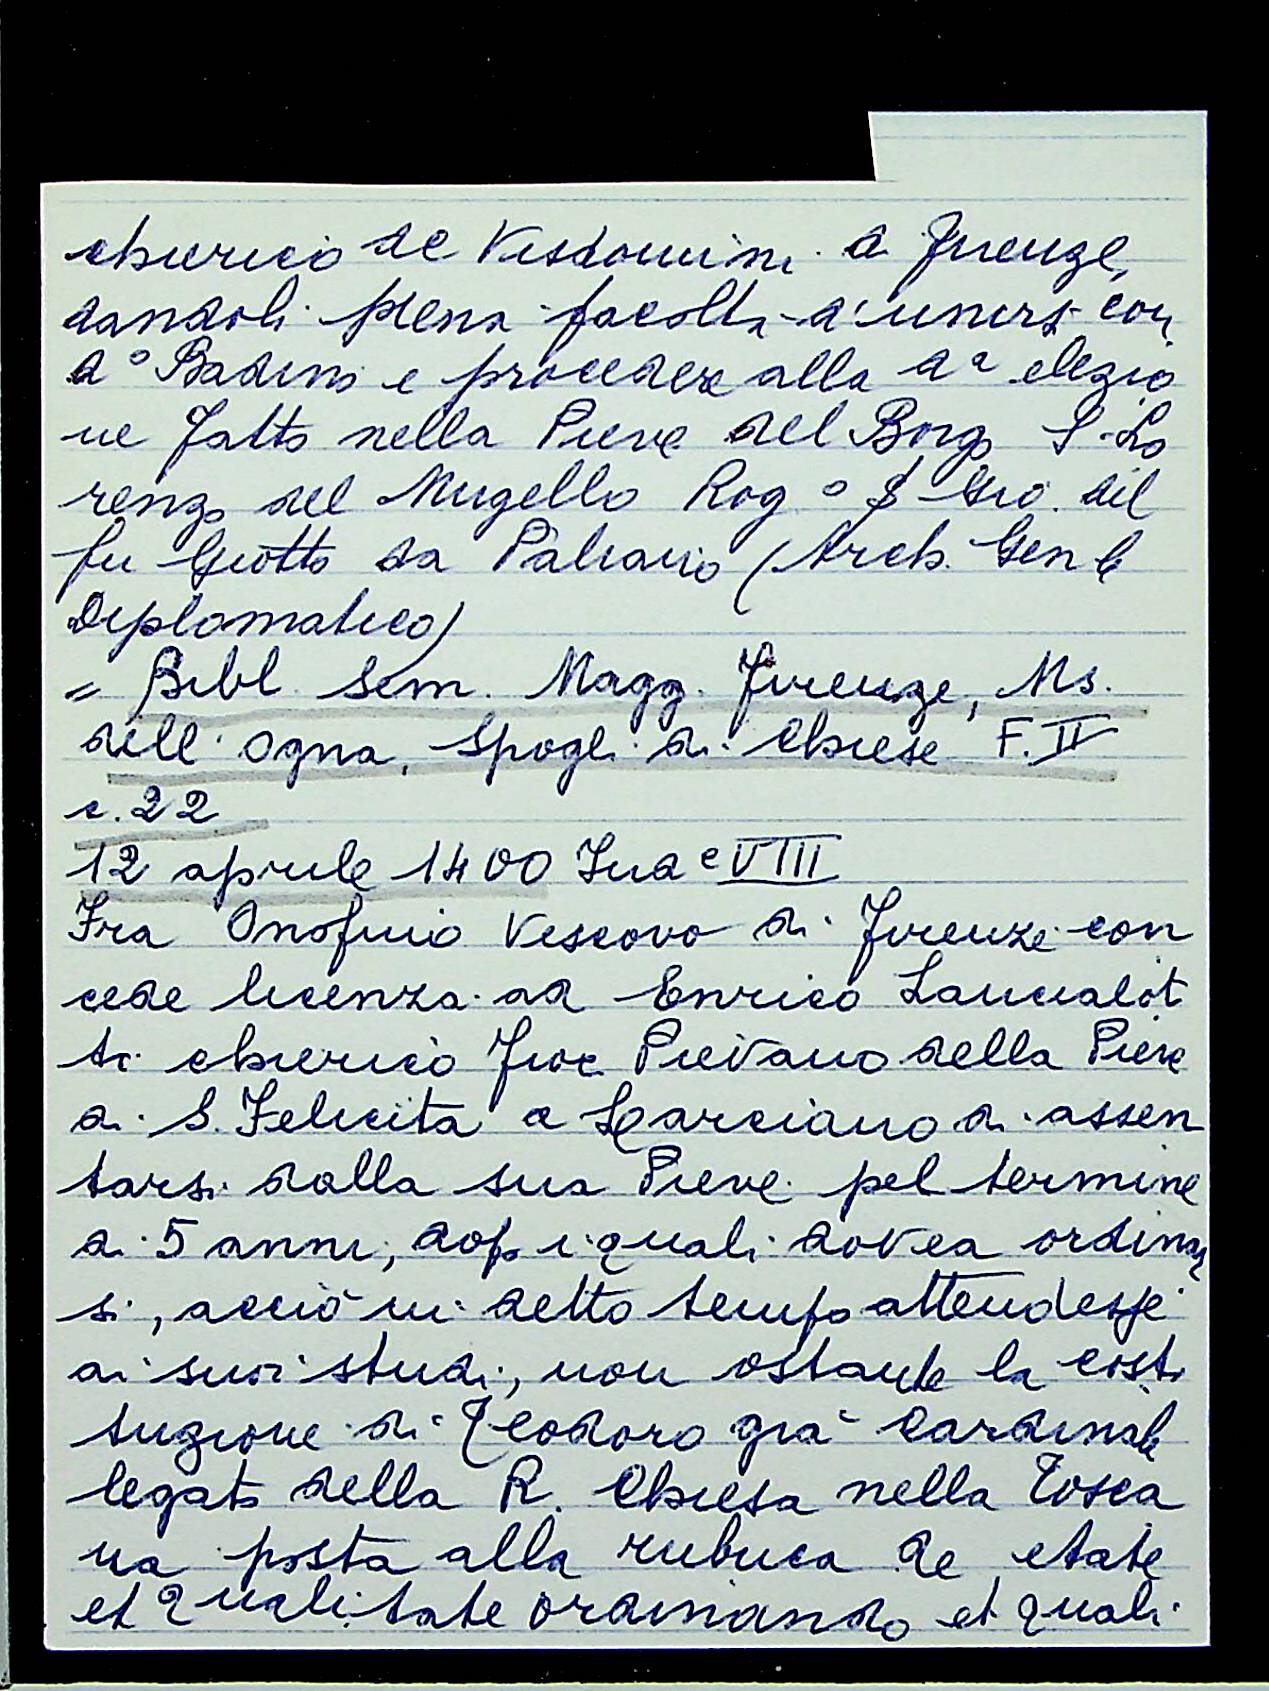 chierico de Visdomini a Firenze,
dandoli piena facoltà d'unirsi con
dº Badino e procedere alla dª elezio
ne fatto nella Pieve del Borgo S. Lo
renzo del Mugello Rogº S Gio. del
fu Giotto da (Arch. Genle
Diplomatico)
= Bibl. Sem. Magg. Firenze, Ms.
dell'Ogna, Spogli di Chiese F. II
c. 22
12 aprile 1400 Inde VIII
Fra Onofrio Vescovo di Firenze con
cede licenza ad Enrico Lancialot
ti chierico fior. Pievano della Pieve
di S. Felicita a Larciano di assen
tarsi dalla sua Pieve pel termine
di 5 anni, dopo i quali dovea ordinar
si, acciò in detto tempo attendesse
ai suoi studi, non ostante la costi
tuzione di Teodoro già Cardinale
legato della R. Chiesa nella Tosca
na posta alla rubrica De etate
et qualitate ordinando et quali